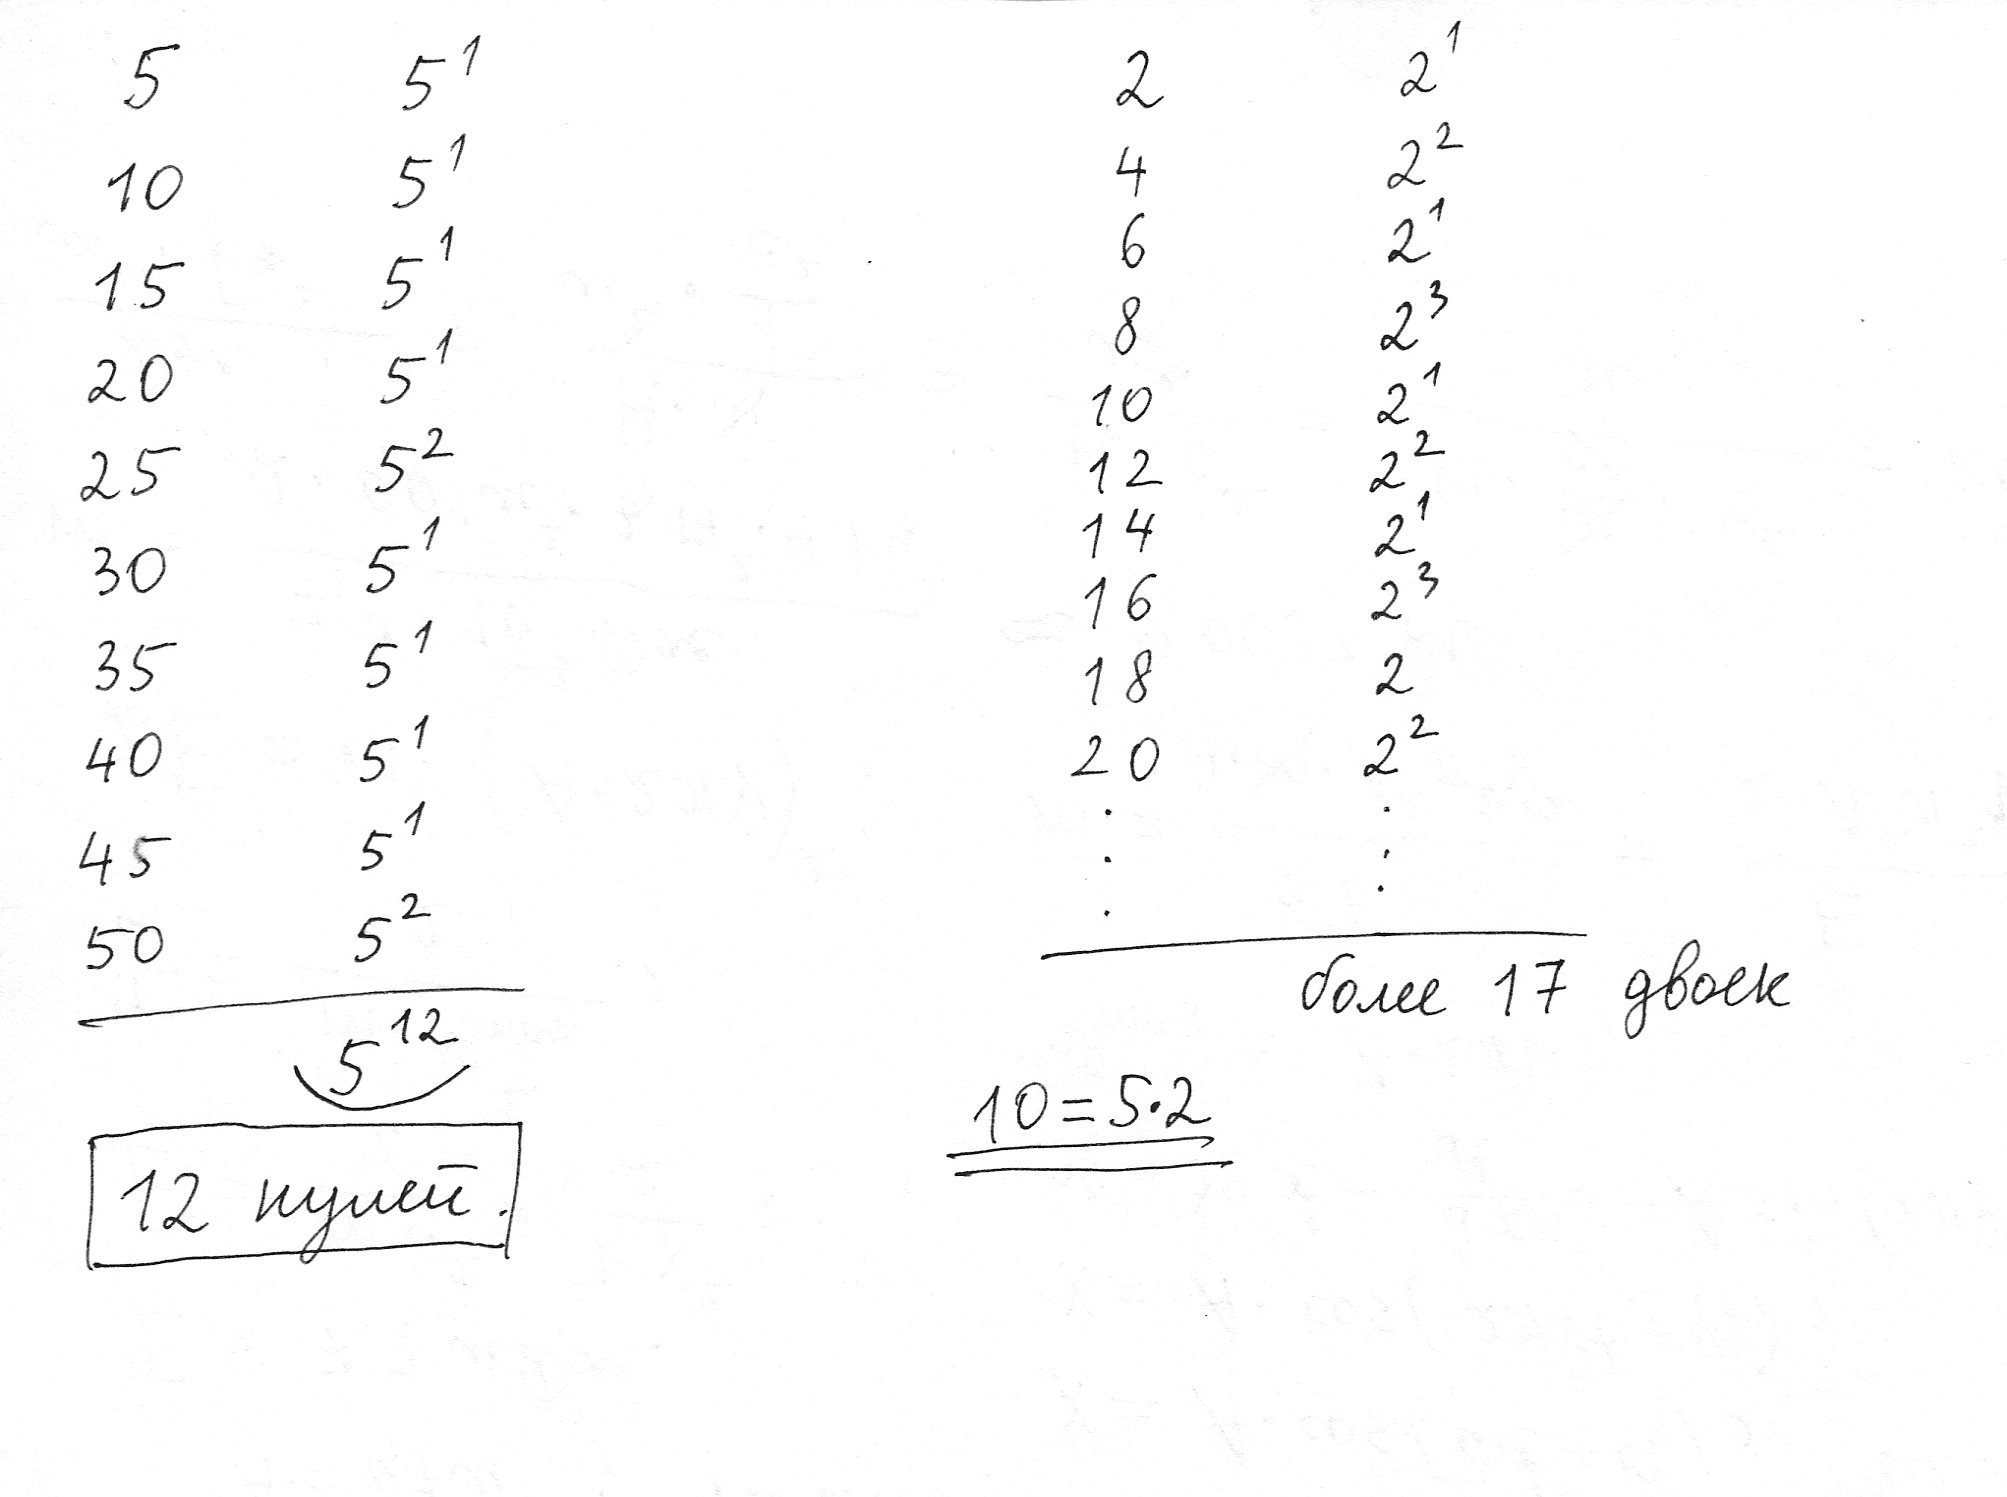 5 5^1
10 5^1
15 5^1
20 5^1
25 5^2
30 5^1
35 5^1
40 5^1
45 5^1
50 5^2
5^12
12 нулей.
2 2^1
4 2^2
6 2^1
8 2^3
10 2^1
12 2^2
14 2^1
16 2^3
18 2
20 2^2
. .
. .
. .
более 17 двоек
10=5·2